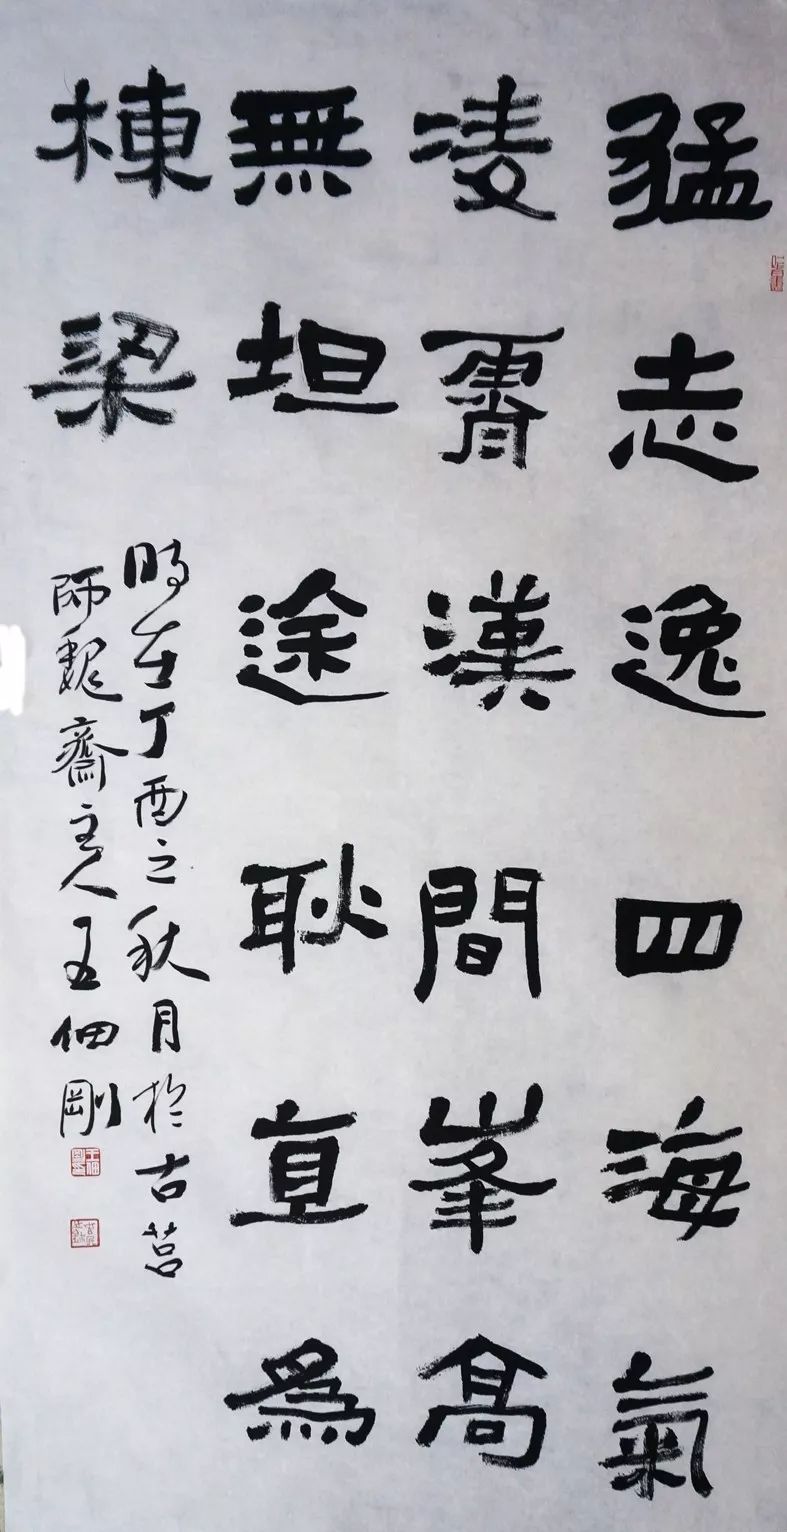 猛志逸四海氣
凌霄漢間峯高
無坦途耿直為
棟梁
時在丁酉之秋月於古莒
師魏齋主人王佃剛